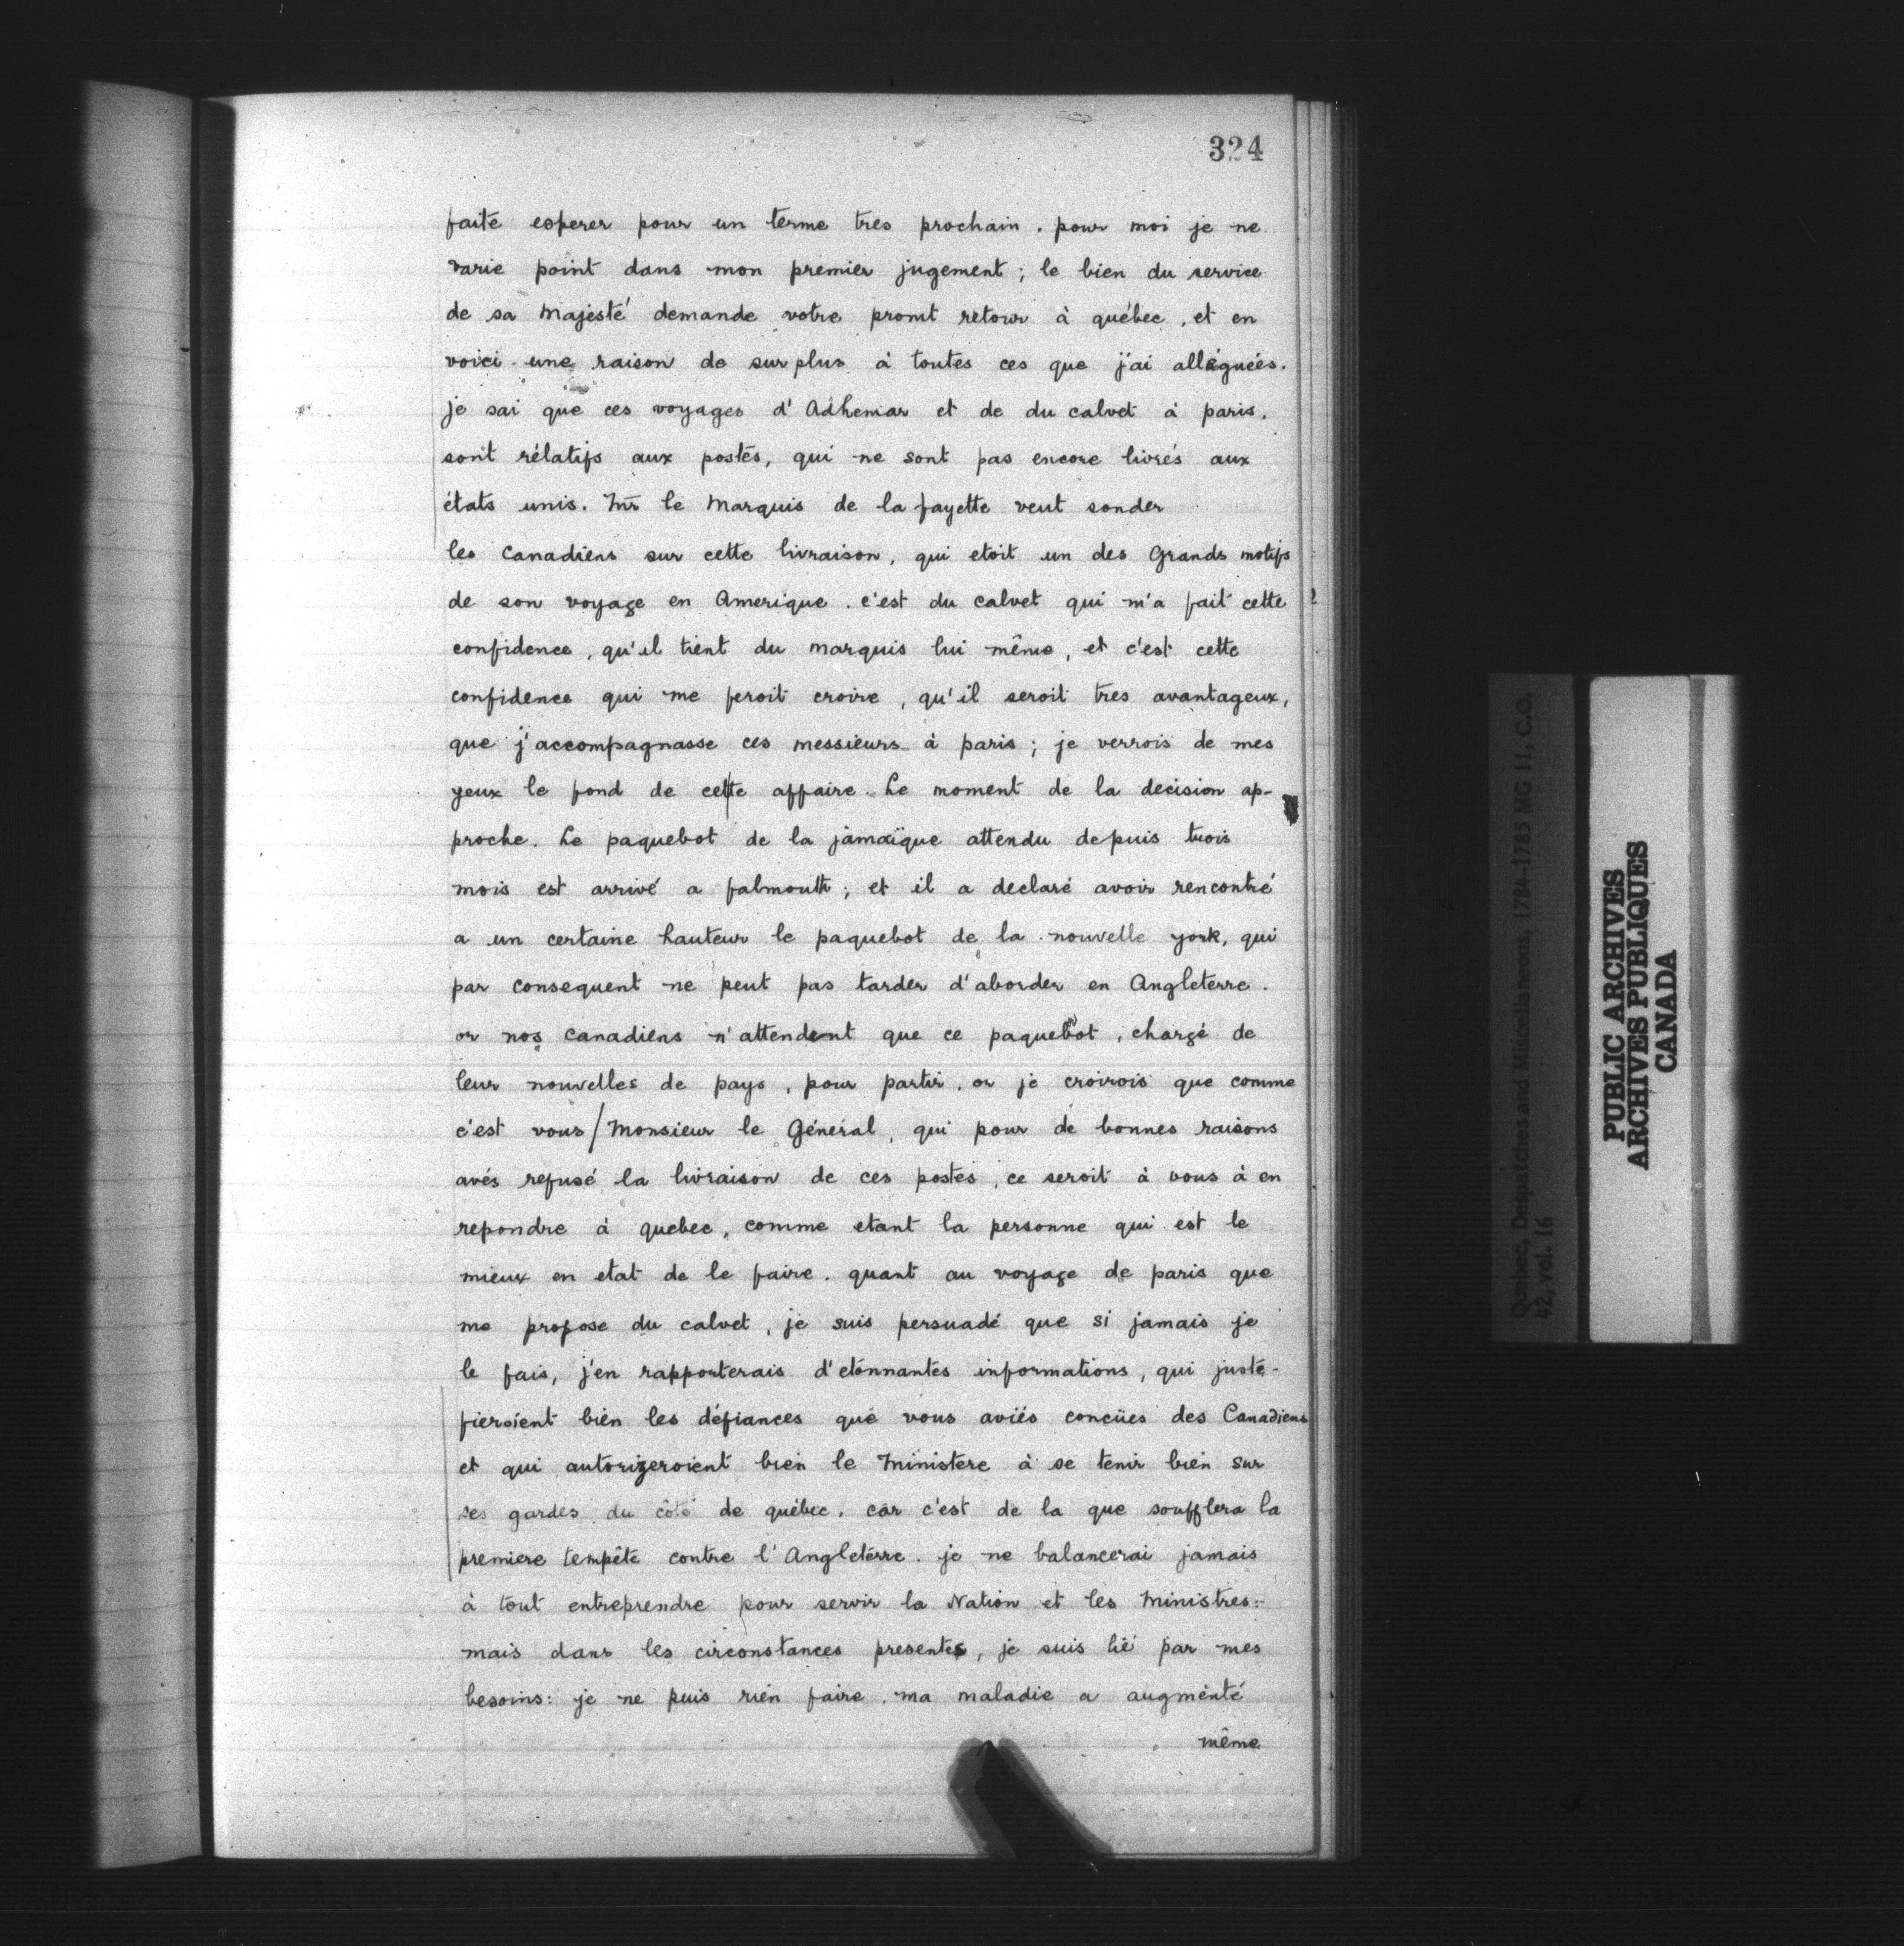 324
faite esperer pour un terme tres prochain. pour moi je ne
varie point dans mon premier jugement; le bien du service
de sa Majesté demande votre promt retour à québec, et en
voici une raison de surplus à toutes ces que j'ai alléguées.
je sai que ces voyages d'Adhemar et de du calvet à paris,
sont rélatifs aux postes, qui ne sont pas encore livrés aux
états unis. Mr le Marquis de la fayette veut sonder
les Canadiens sur cette livraison, qui etoit un des Grands motifs
de son voyage en Amerique. c'est du calvet qui m'a fait cette
confidence, qu'il tient du marquis lui même, et c'est cette
confidence qui me feroit croire, qu'il seroit tres avantageux,
que j'accompagnasse ces messieurs à paris; je verrois de mes
yeux le fond de cette affaire. Le moment de la decision ap-
proche. Le paquebot de la jamaïque attendu depuis trois
mois est arrivé a falmouth; et il a declaré avoir rencontré
a un certaine hauteur le paquebot de la nouvelle york, qui
par consequent ne peut pas tarder d'aborder en Angleterre.
or nos Canadiens n'attendent que ce paquebot, chargé de
leur nouvelles de pays, pour partir. or je croirois que comme
c'est vous/Monsieur le Général, qui pour de bonnes raisons
avés refusé la livraison de ces postes, ce seroit à vous à en
repondre à quebec, comme etant la personne qui est le
mieux en etat de le faire. quant au voyage de paris que
me propose du calvet, je suis persuadé que si jamais je
le fais, j'en rapporterais d'etonnantes informations, qui juste-
fieroient bien les défiances que vous aviés concües des Canadiens
et qui autorizeroient bien le Ministere à se tenir bien sur
ses gardes du côté de québec. car c'est de la que soufflera la
premiere tempête contre l'Angleterre. je ne balancerai jamais
à tout entreprendre pour servir la Nation et les Ministres:
mais dans les circonstances presentes, je suis lié par mes
besoins: je ne puis rien faire. ma maladie a augmenté
même
Quebec, Despatches and Miscellaneous, 1784-1785 MG 11, C.O.
42, vol. 16
PUBLIC ARCHIVES
ARCHIVES PUBLIQUES
CANADA